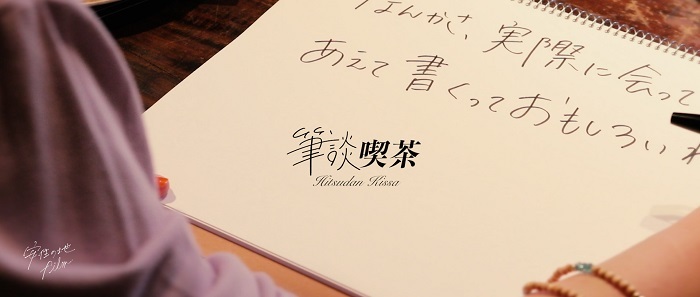 なんかさ、実際に会って
あえて書くっておもしろいね
筆談喫茶
Hitsudan Kissa